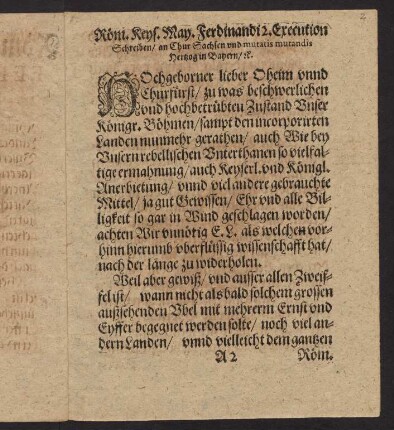 Röm. Keys. May. Ferdinandi 2. Execution
Schreiben/ an Chur Sachsen vnd mutatis mutandis
Hertzog in Bayern/ ꝛc.
HOchgeborner lieber Oheim vnnd
Churfürst/ zu was beschwerlichen
vnd hochbetrübten Zustand Vnser
Königr. Böhmen/ sampt den incorporirten
Landen nunmehr gerathen/ auch Wie bey
Vnsern rebellischen Vnterthanen so vielfal-
tige ermahnung/ auch Keyserl. vnd Königl.
Anerbietung/ vnnd viel andere gebrauchte
Mittel/ ja gut Gewissen/ Ehr vnd alle Bil-
ligkeit so gar in Wind geschlagen worden/
achten Wir vnnötig E. L. als welchen vor-
hinn hierumb vberflüssig wissenschafft hat/
nach der länge zu widerholen.
Weil aber gewiß/ vnd ausser allen Zweiff-
fel ist/ wann nicht als bald solchem grossen
außsehenden Vbel mit mehrerm Ernst vnd
Eyffer begegnet werden solte/ noch viel an-
dern Landen/ vnnd vielleicht dem gantzen
A 2 Röm.